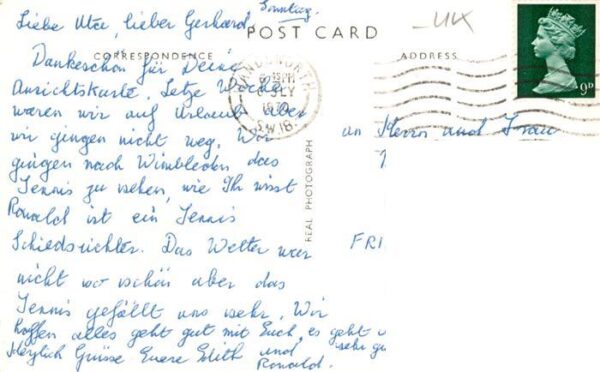 Sonntag.
Liebe Ute, lieber Gerhard,
POST CARD
CORRESPONDENCE
ADDRESS
Dankeschön für Deine
Ansichtskarte. Letze Woche
waren wir auf Urlaub aber
wir gingen nicht weg. Wir
gingen nach Wimbledon das
Tennis zu sehen, wie Ihr wisst
Ronald ist ein Tennis
Schiedsrichter. Das Wetter war
nicht so schön aber das
Tennis gefällt uns sehr. Wir
hoffen alles geht gut mit Euch, es geht
sehr gu
Herzlich Grüsse Euere Edith und
Ronald.
WANDSWORTH
JLY
1970
S.W.18
REAL PHOTOGRAPH
9D
an Herrn und Frau
FRI